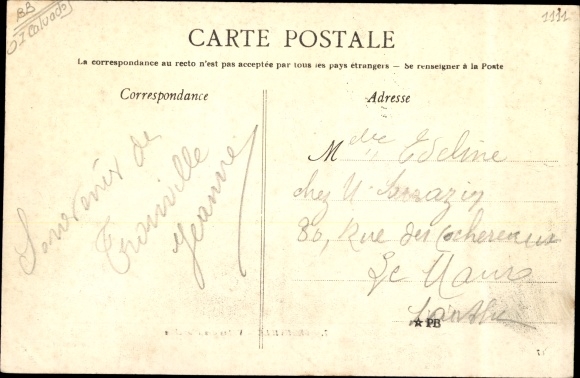 BB
CARTE POSTALE
La correspondance au recto n'est pas acceptée par tous les pays étrangers — Se renseigner à la Poste
Correspondance
Adresse
Souvenir de
Trouville
Jeanne
Mdlle Edeline
chez M. Sarrazin
80, Rue des
Le Mans
Sarthe
★ PB